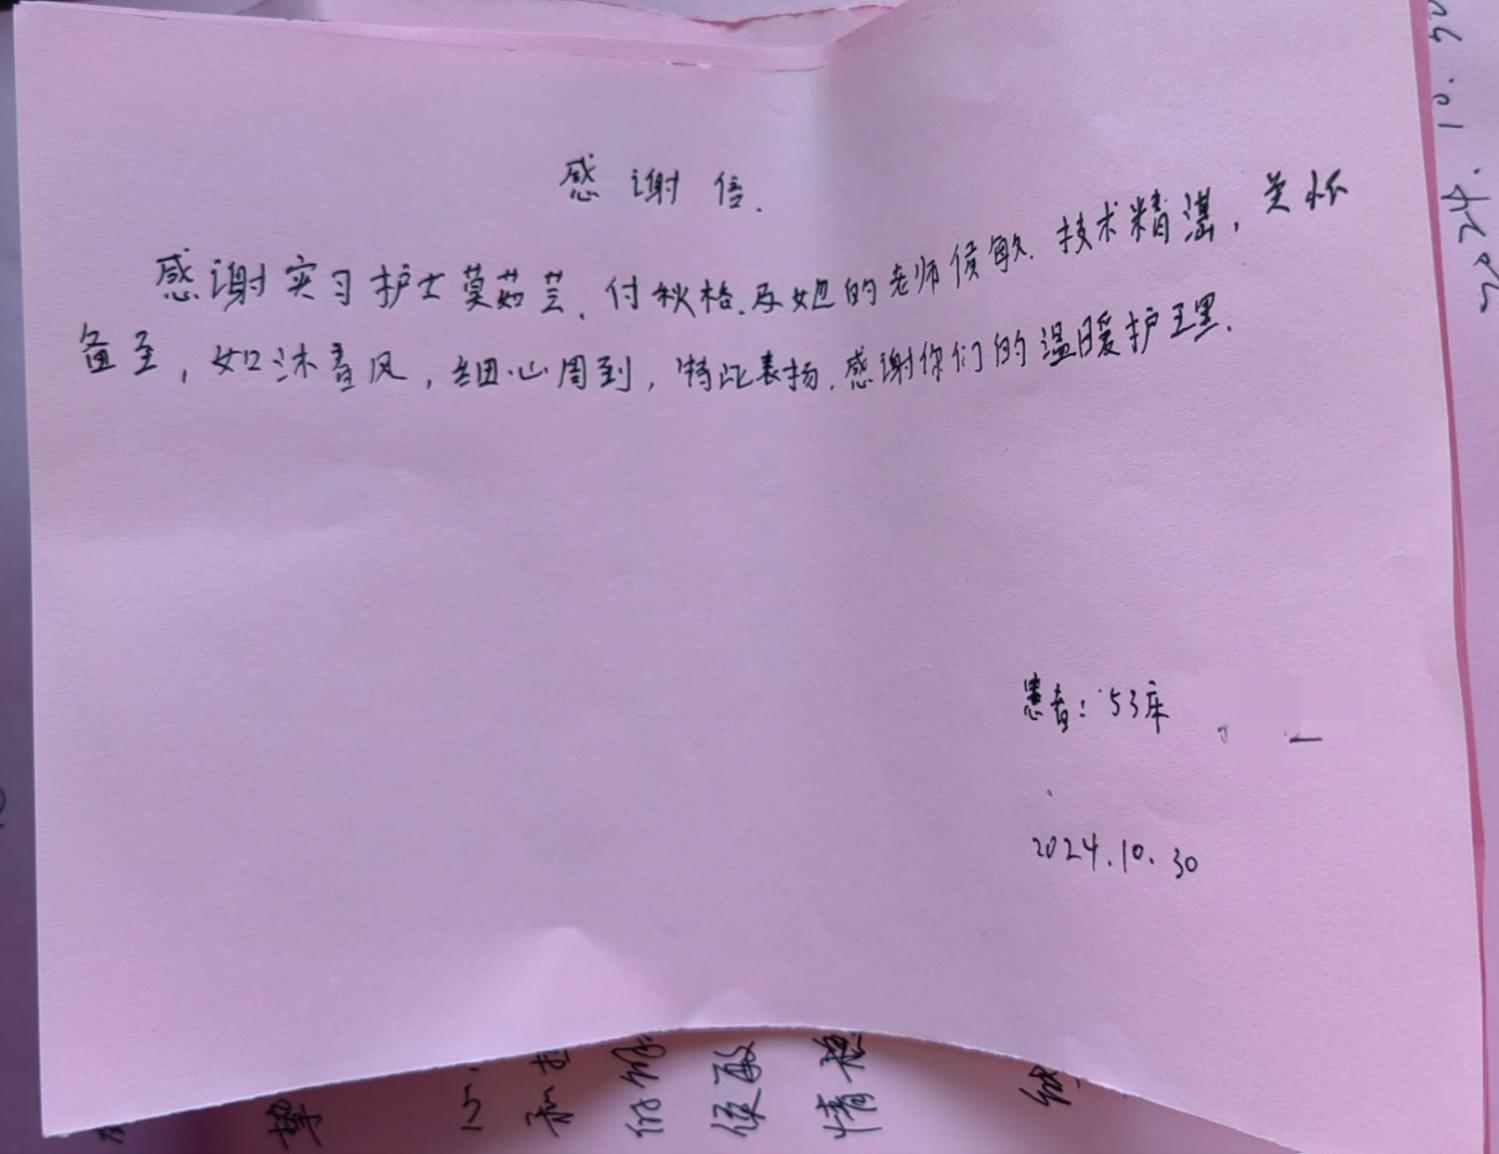 感谢信.
感谢实习护士莫茹芸、付秋格.及她的老师侯敏.技术精湛,关怀
备至,如沐春风,细心周到,特此表扬.感谢你们的温暖护理.
患者:53床
2024.10.30
2024.10.30
侯敏
情